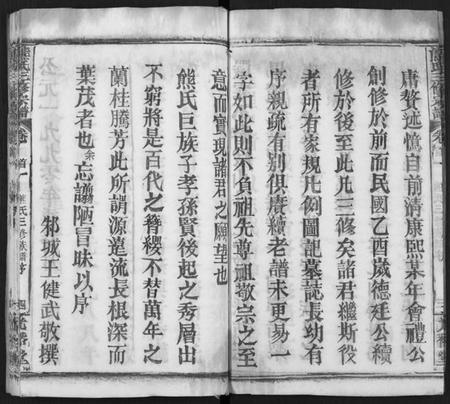 賡贊述憶自前清康熙某年會禮公
創修於前而民國乙酉歲德廷公續
修於後至此凡三修矣諸君繼斯役
者所有家規凡例圖記墓誌長幼有
序親疏有別俱賡續老譜未更易一
字如此則不負祖先尊祖敬宗之至
意而實現諸君之願望也
熊氏巨族子孝孫賢後起之秀層出
不窮將是百代之簪纓不替萬年之
蘭桂騰芳此所謂源遠流長根深而
葉茂者也余忘譾陋冒昧以序
邾城王健武敬撰
熊氏三修族譜序